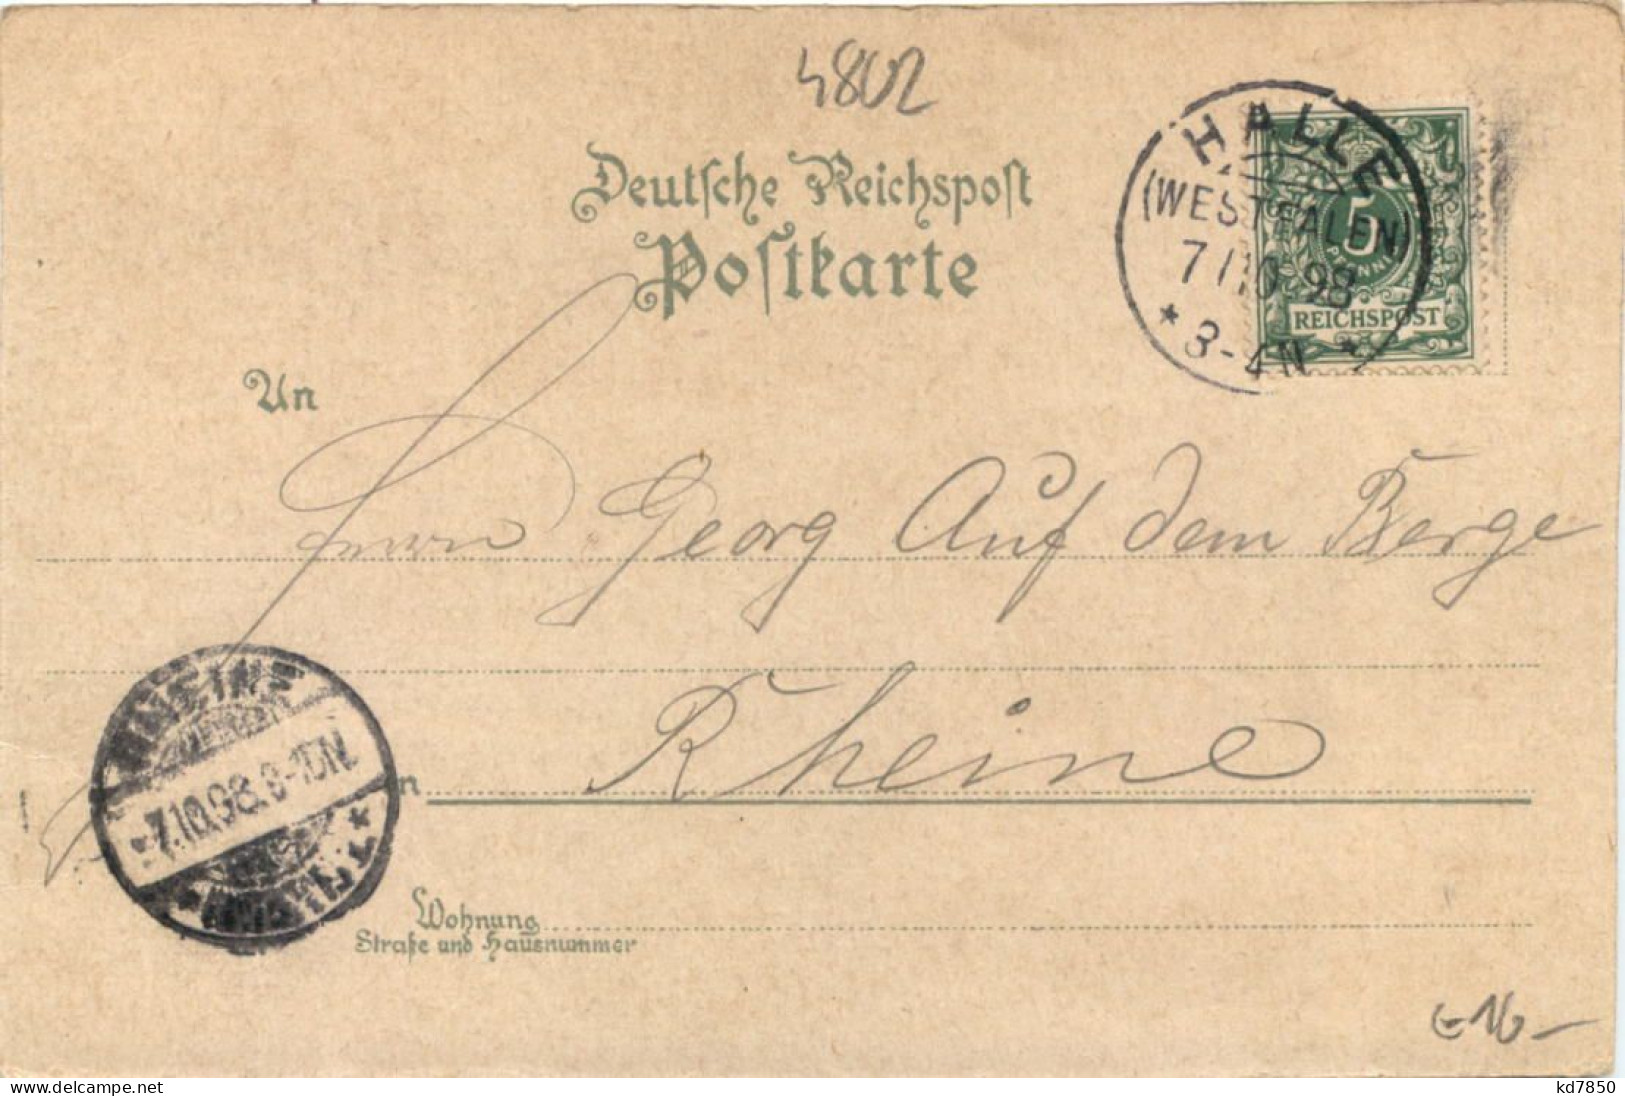 4802
Deutsche Reichspost
Postkarte
HALLE
(WESTFALEN)
7/10 98
* 3-4N *
5
PFENNIG
REICHSPOST
An
Herrn Georg Auf dem Berge
Rheine
RHEINE
7.10.98. 8-10N.
Wohnung
Straße und Hausnummer
€ 16-
www.delcampe.net
kd7850